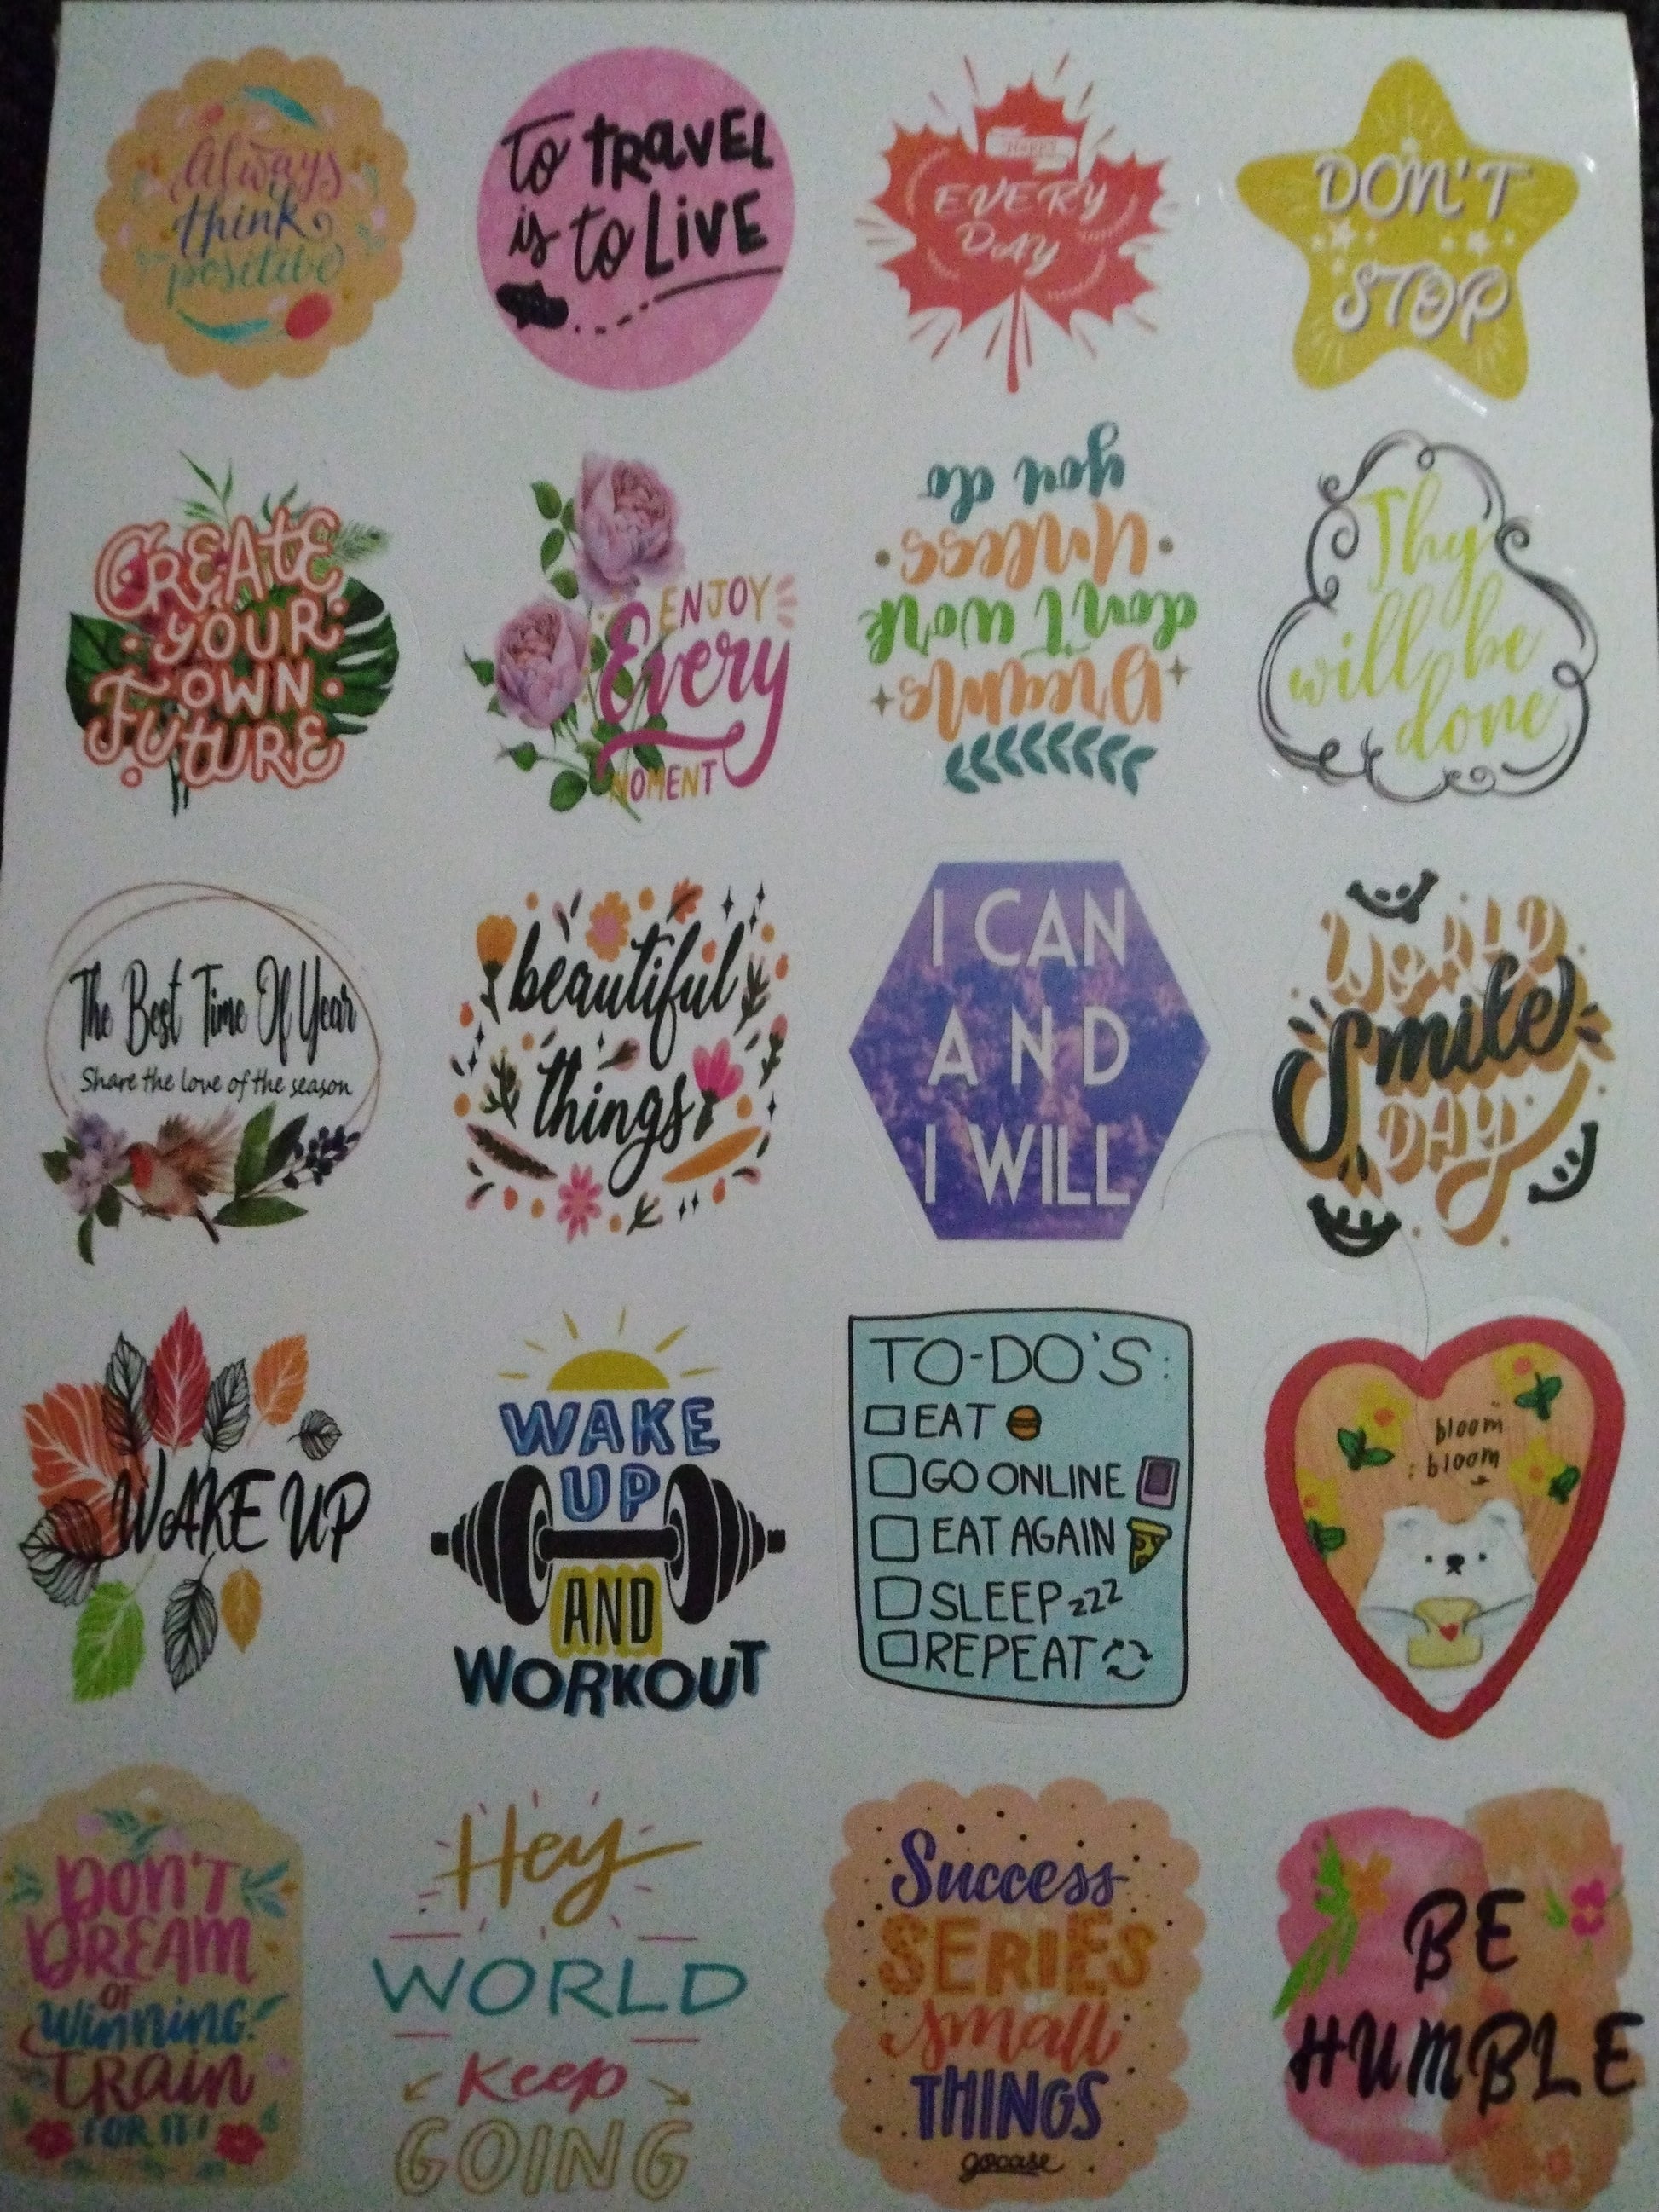 Always
think
positive
to TRAVEL
is to LiVE
HAPPY
EVERY
DAY
DON'T
STOP
CREATE
YOUR
OWN
FUTURE
ENJOY
Every
MOMENT
Dreams
don't work
Unless
you do
Thy
will be
done
The Best Time Of Year
Share the love of the season
beautiful
things
I CAN
AND
I WILL
WORLD
Smile
DAY
WAKE UP
WAKE
UP
AND
WORKOUT
TO-DO'S:
EAT
GO ONLINE
EAT AGAIN
SLEEP zzz
REPEAT
bloom
bloom
DON'T
DREAM
OF
WINNING.
TRAIN
FOR IT!
Hey
WORLD
Keep
GOING
Success
SERIES
small
THINGS
gocase
BE
HUMBLE